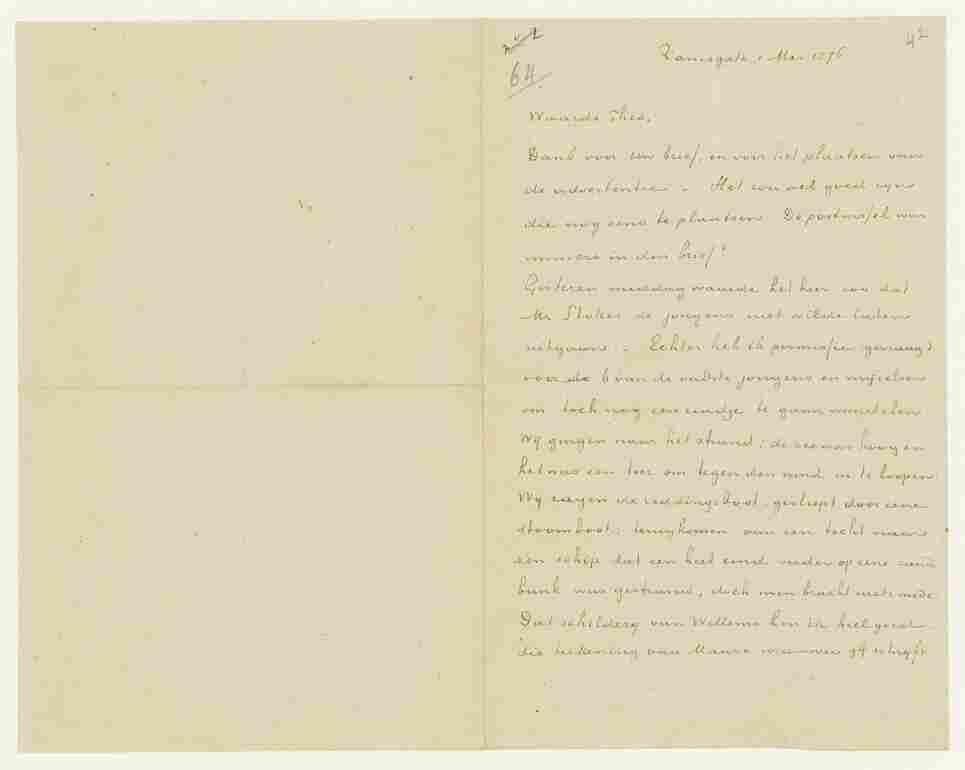 64
42
Ramsgate, 1 Mei 1876
Waarde Theo,
Dank voor Uw brief, en voor het plaatsen van
de advertentie. Het zou wel goed zijn
die nog eens te plaatsen. De postwissel was
immers in den brief?
Gisteren middag waaide het hier zoo dat
Mr Stokes de jongens niet wilde laten
uitgaan. Echter heb ik permissie gevraagd
voor de 6 van de oudste jongens en mijzelven
om toch nog een eindje te gaan wandelen
Wij gingen naar het strand; de zee was hoog en
het was een toer om tegen den wind in te loopen.
Wij zagen de reddingsboot, gesleept door eene
stoomboot, terugkomen van een tocht naar
een schip dat een heel eind verder op eene zand
bank was gestrand, doch men bracht niets mede.
Dat schilderij van Willems ken ik heel goed
die teekening van Mauve waarover gij schrijft